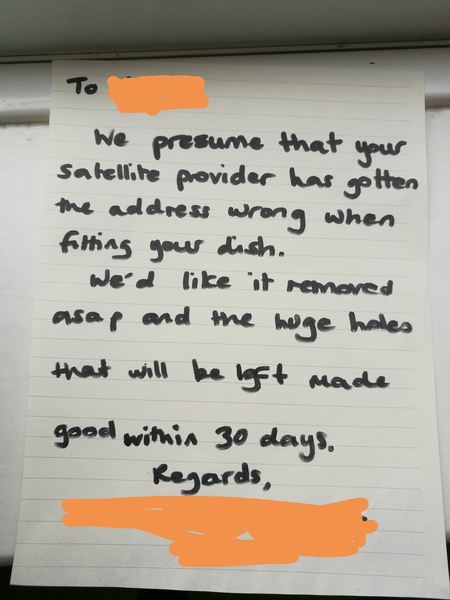 To
We presume that your
satellite provider has gotten
the address wrong when
fitting your dish.
We'd like it removed
asap and the huge holes
that will be left made
good within 30 days.
Regards,